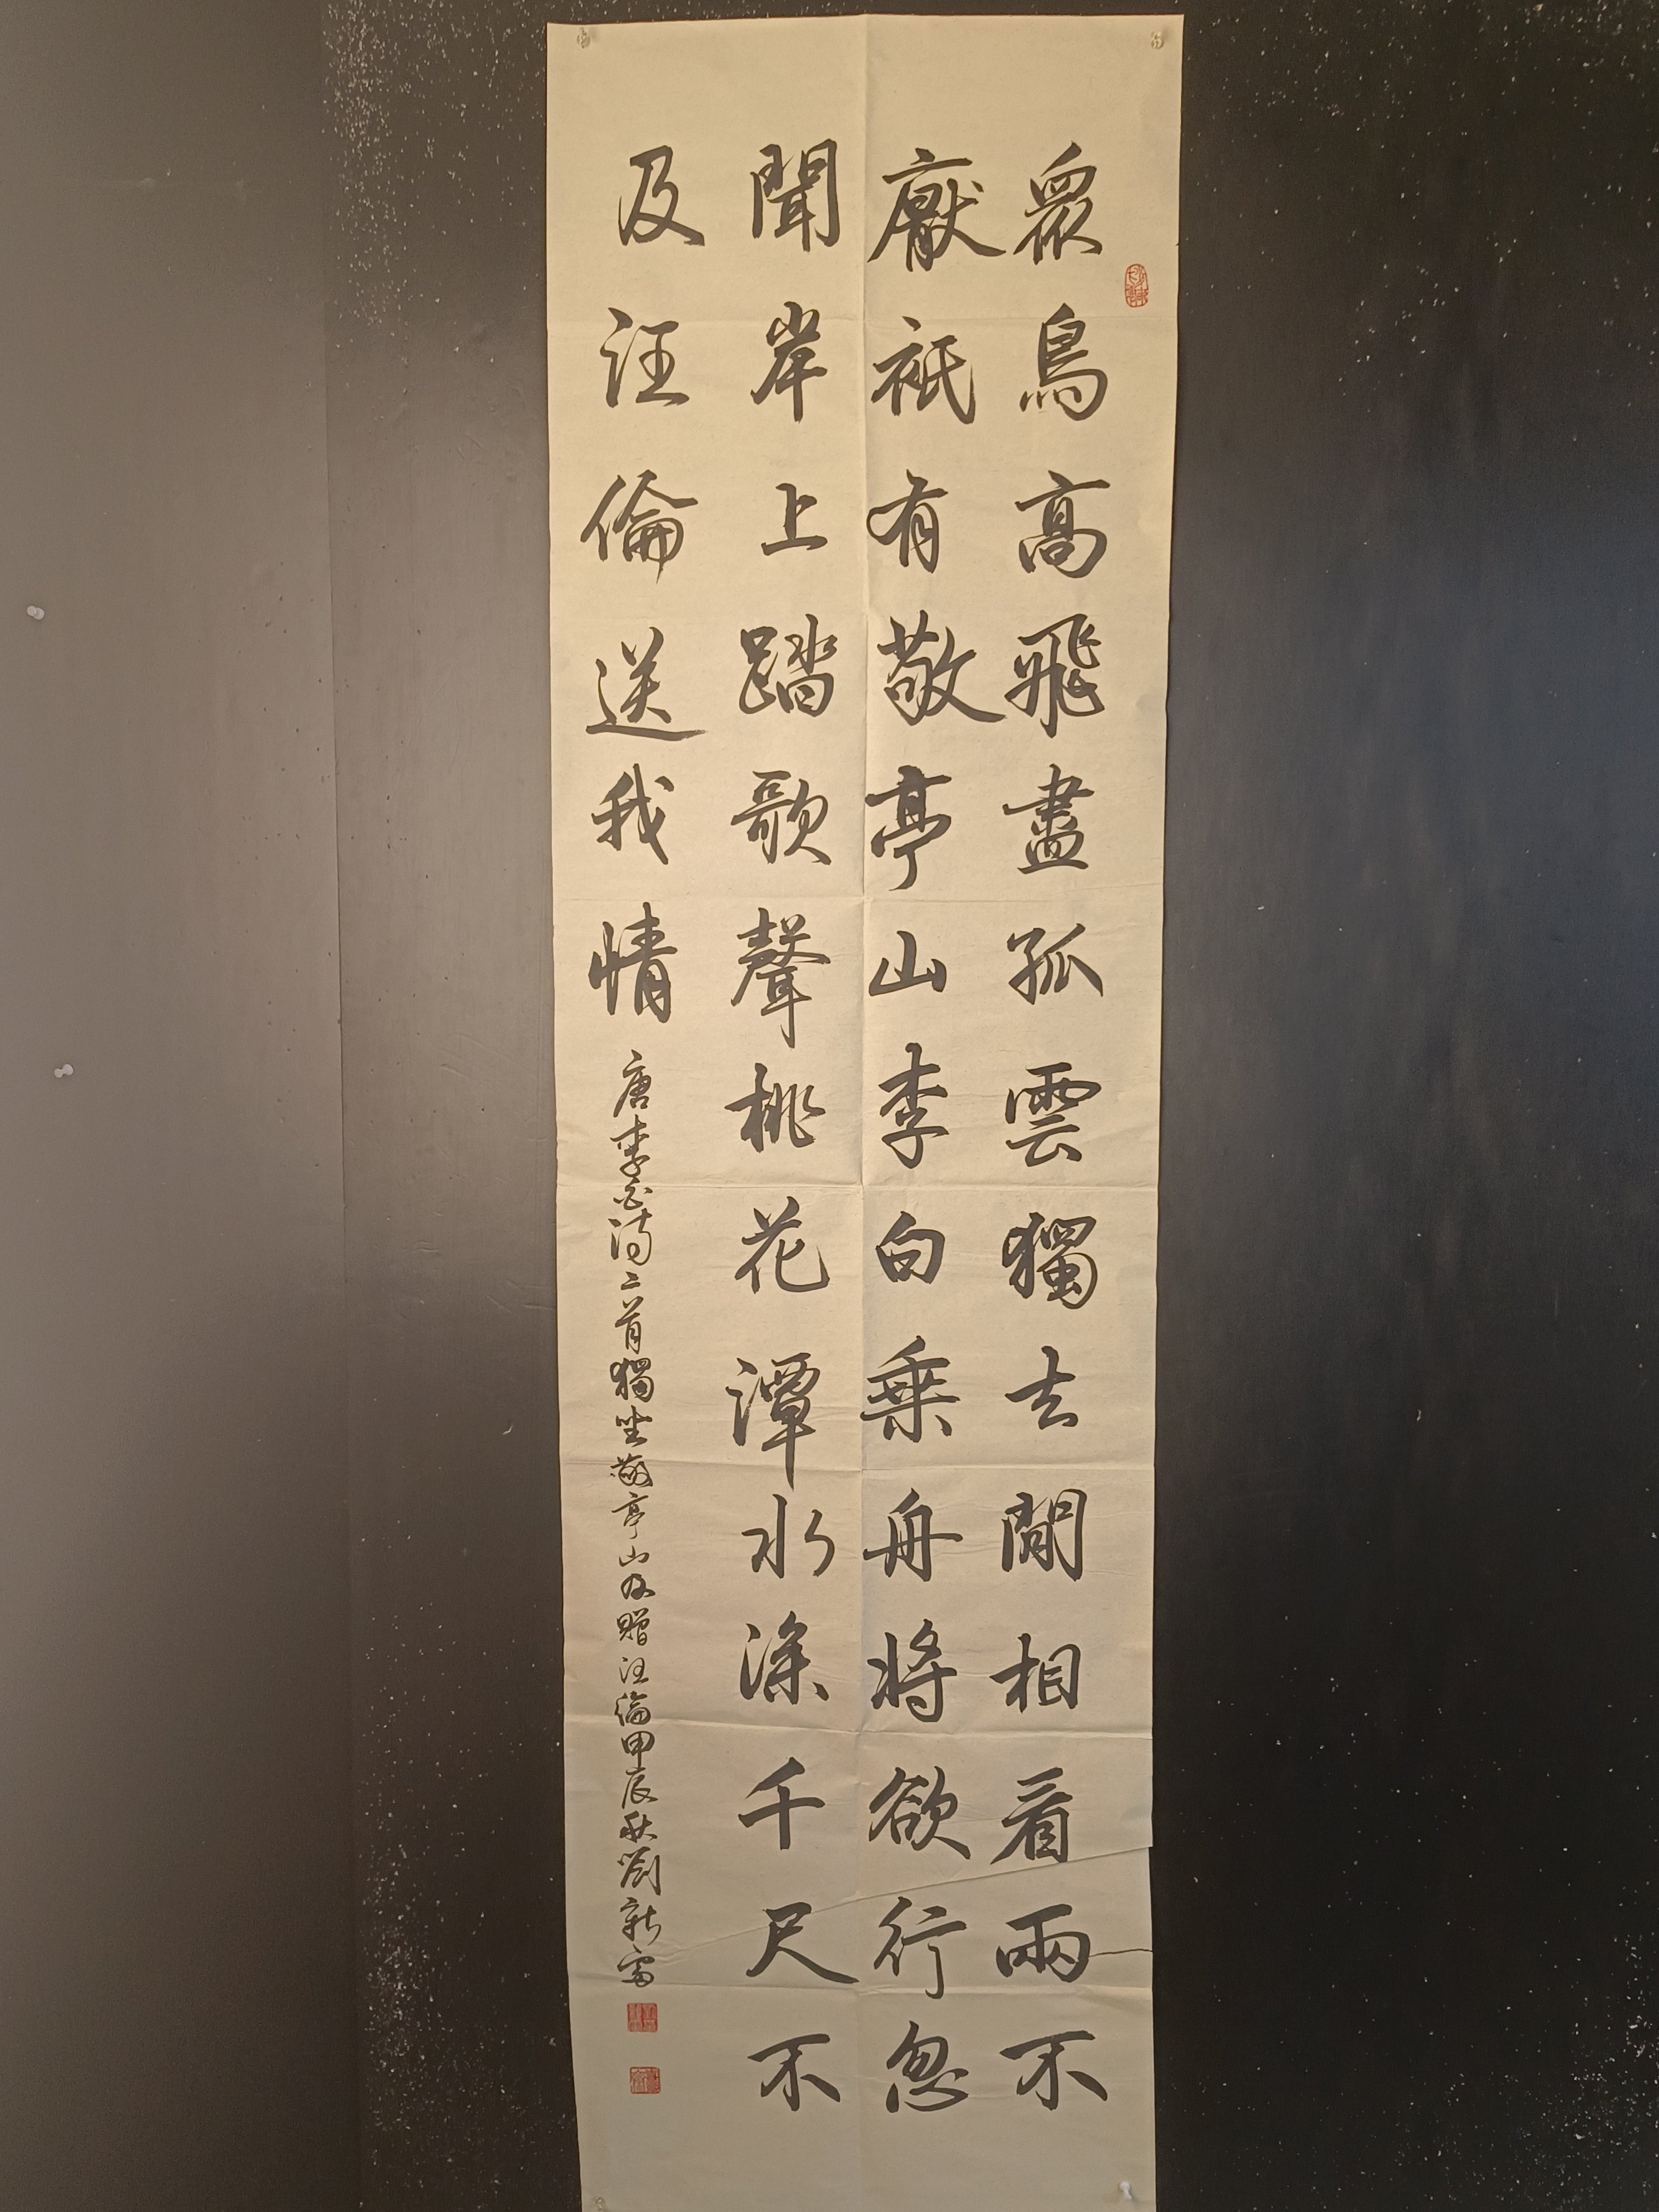 眾鳥高飛盡孤雲獨去閒相看兩不
厭衹有敬亭山李白乘舟將欲行忽
聞岸上踏歌聲桃花潭水深千尺不
及汪倫送我情
唐李白詩二首獨坐敬亭山及贈汪倫甲辰秋劉新富